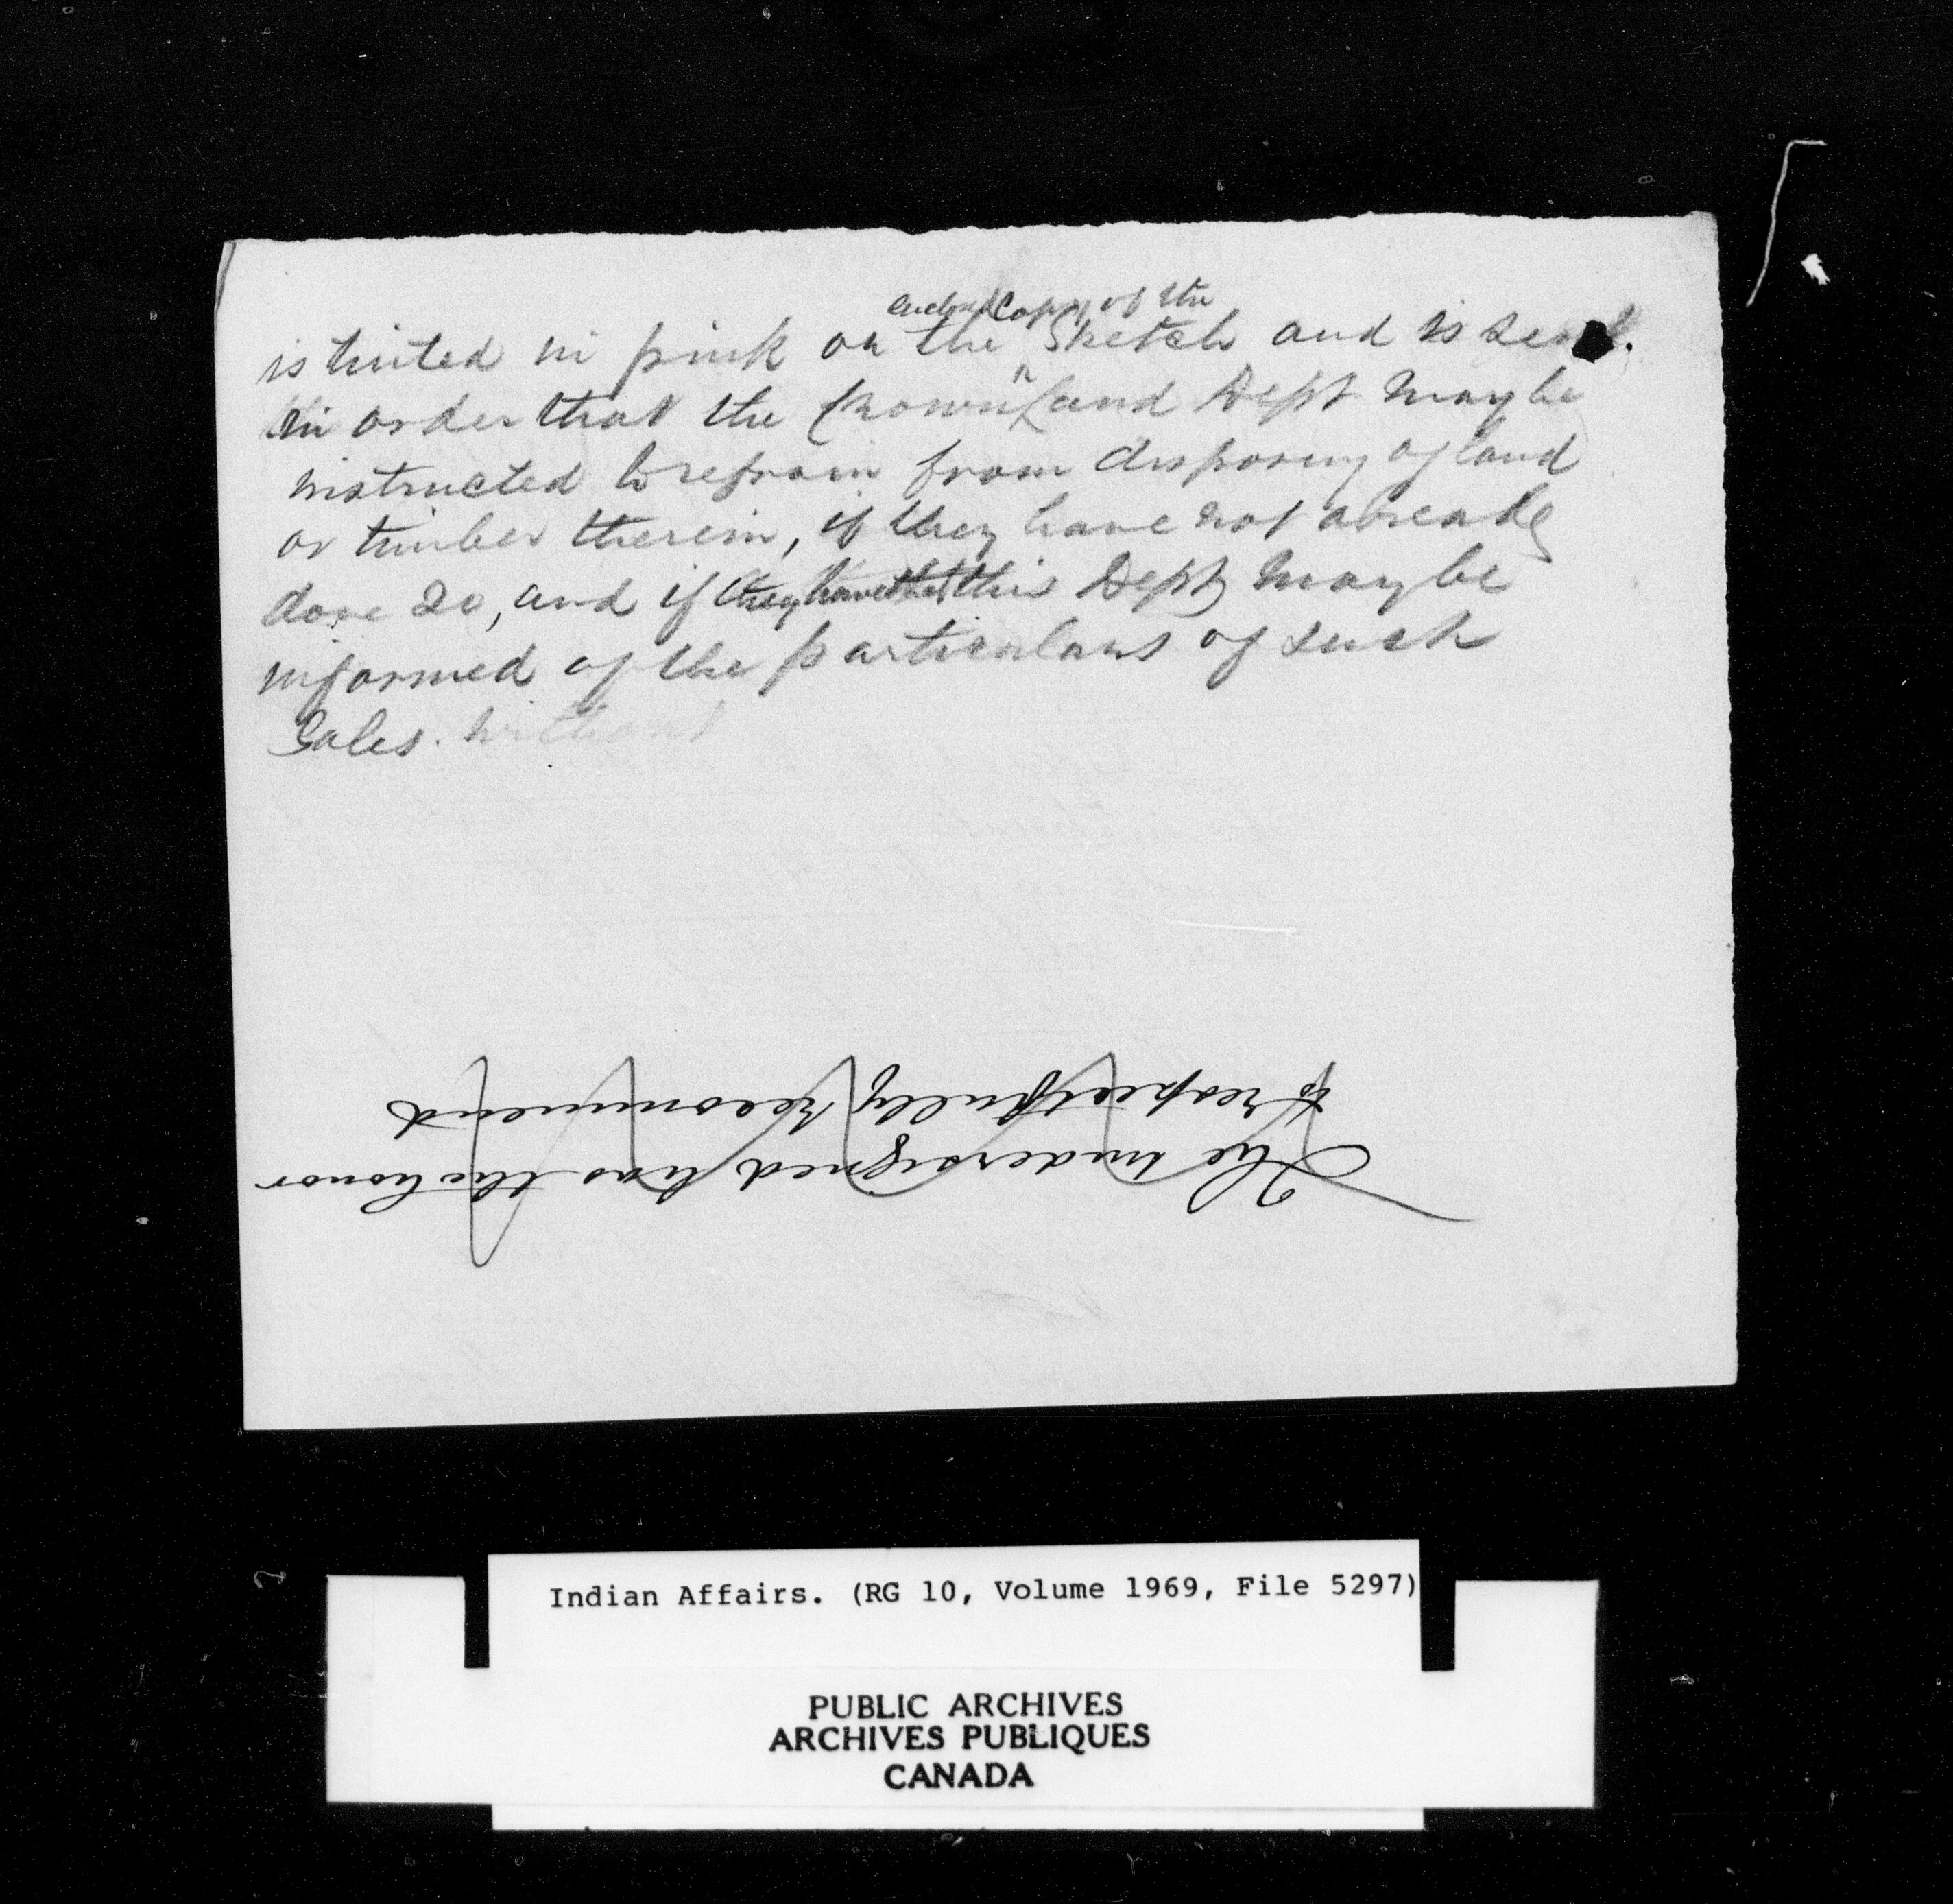 enclosed Copy of the
is tinted in pink on the Sketch and is sent.
in order that the Crown Land Dept may be
instructed to refrain from disposing of land
or timber therein, if they have not already
done so, and if they have that this Dept may be
informed of the particulars of such
Sales. without
The undersigned has the honor
to respectfully recommend
Indian Affairs. (RG 10, Volume 1969, File 5297)
PUBLIC ARCHIVES
ARCHIVES PUBLIQUES
CANADA